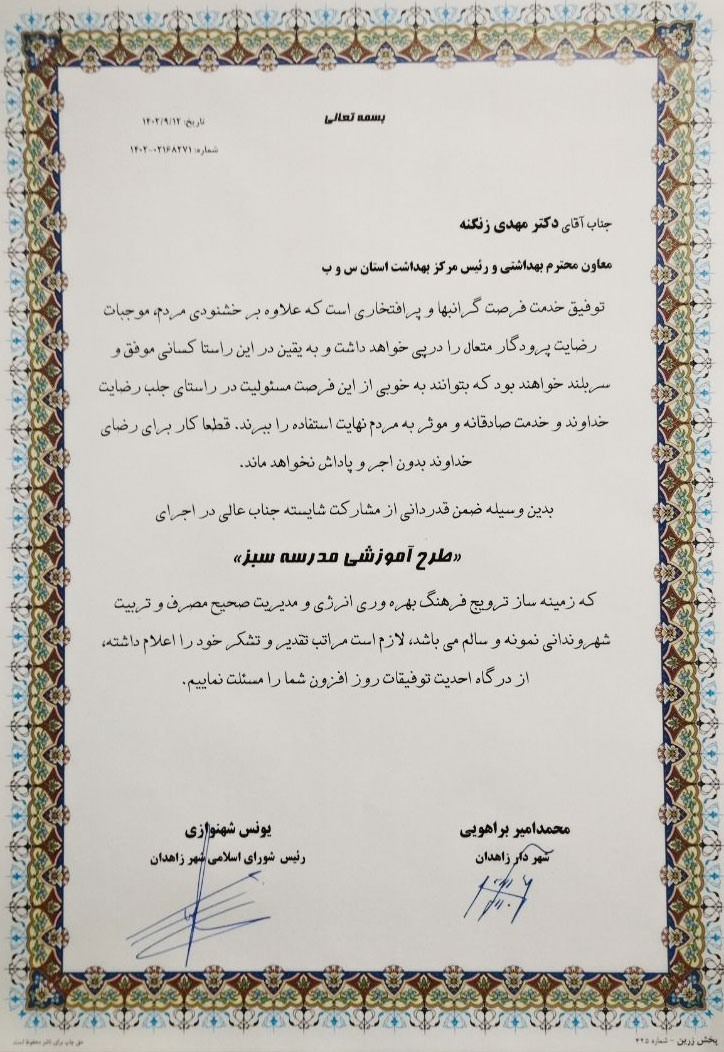 بسمه تعالی
تاریخ: ۱۴۰۲/۹/۱۲
شماره: ۰۲۱۶۸۲۷۱-۱۴۰۲
جناب آقای دکتر مهدی زنگنه
معاون محترم بهداشتی و رئیس مرکز بهداشت استان س و ب
توفیق خدمت فرصت گرانبها و پرافتخاری است که علاوه بر خشنودی مردم، موجبات
رضایت پرودگار متعال را درپی خواهد داشت و به یقین در این راستا کسانی موفق و
سربلند خواهند بود که بتوانند به خوبی از این فرصت مسئولیت در راستای جلب رضایت
خداوند و خدمت صادقانه و موثر به مردم نهایت استفاده را ببرند. قطعا کار برای رضای
خداوند بدون اجر و پاداش نخواهد ماند.
بدین وسیله ضمن قدردانی از مشارکت شایسته جناب عالی در اجرای
«طرح آموزشی مدرسه سبز»
که زمینه ساز ترویج فرهنگ بهره وری انرژی و مدیریت صحیح مصرف و تربیت
شهروندانی نمونه و سالم می باشد، لازم است مراتب تقدیر و تشکر خود را اعلام داشته،
از درگاه احدیت توفیقات روز افزون شما را مسئلت نماییم.
محمدامیر براهویی
شهردار زاهدان
یونس شهنوازی
رئیس شورای اسلامی شهر زاهدان
پخش زرین - شماره ۴۲۵
حق چاپ برای ناشر محفوظ است